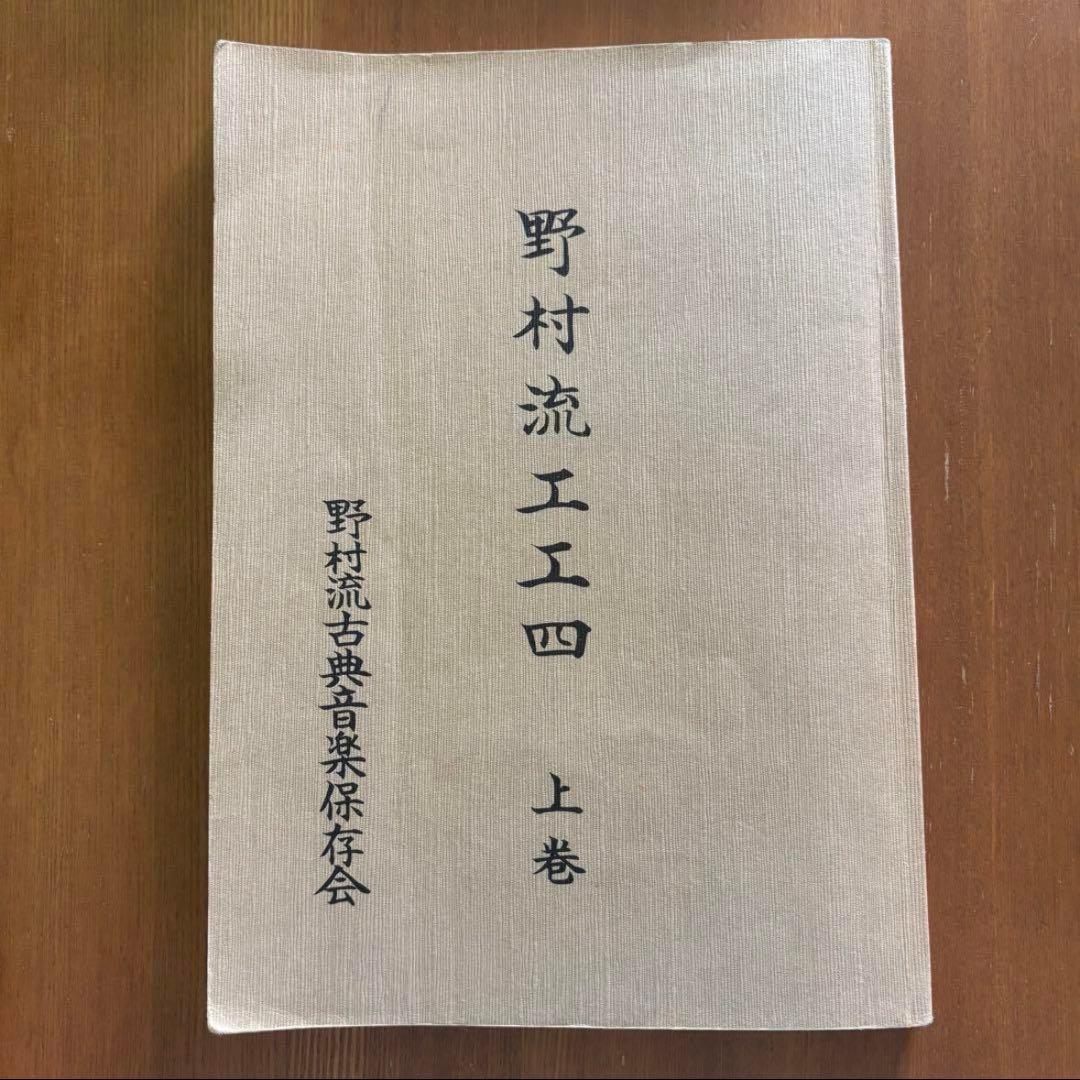 野村流工工四 上巻
野村流古典音楽保存会